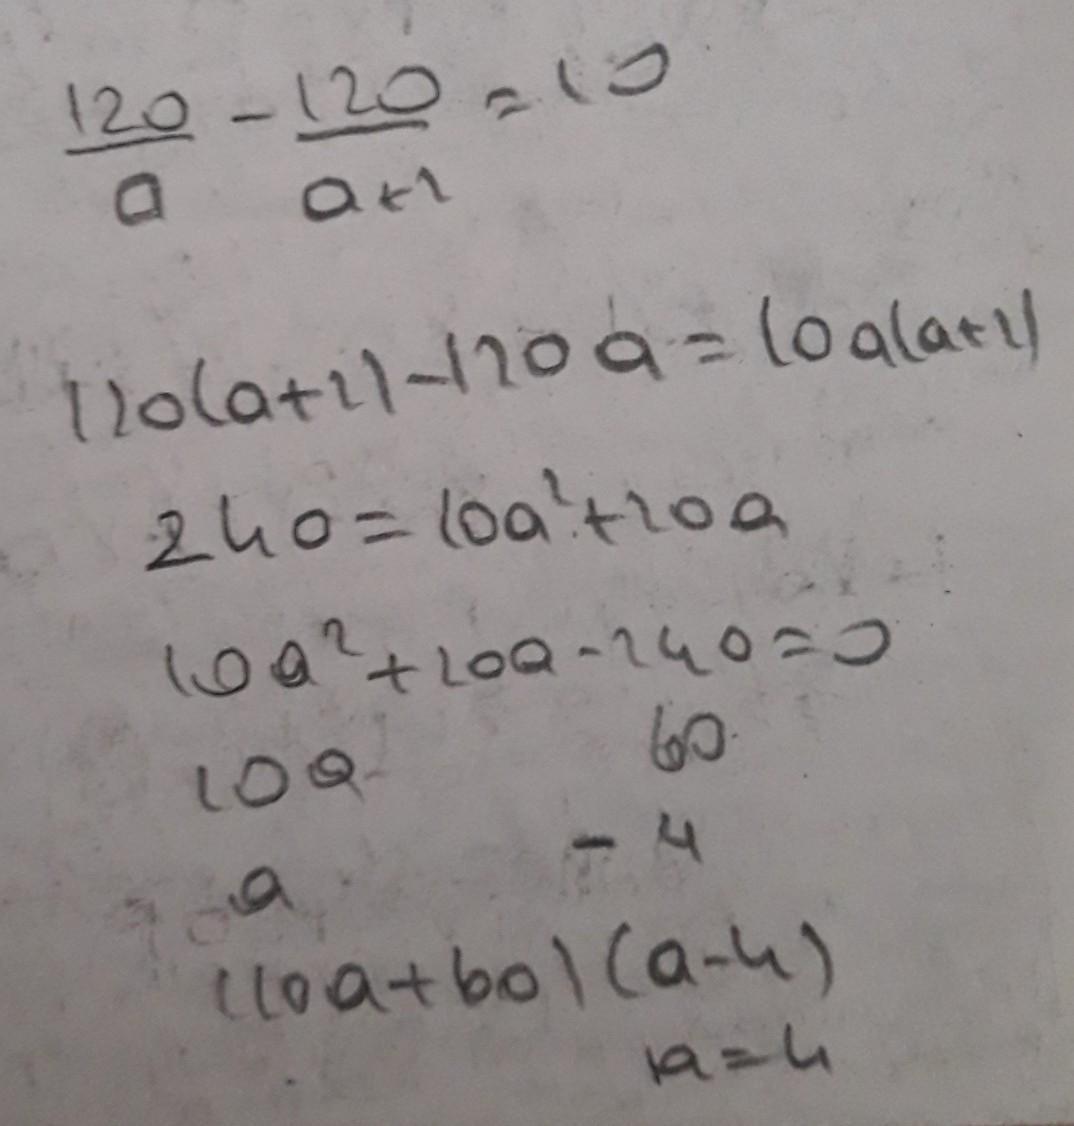 120/a - 120/a+2 = 10
120(a+2) - 120a = 10a(a+2)
240 = 10a² + 20a
10a² + 20a - 240 = 0
10a 60
a - 4
(10a + 60) (a - 4)
a = 4